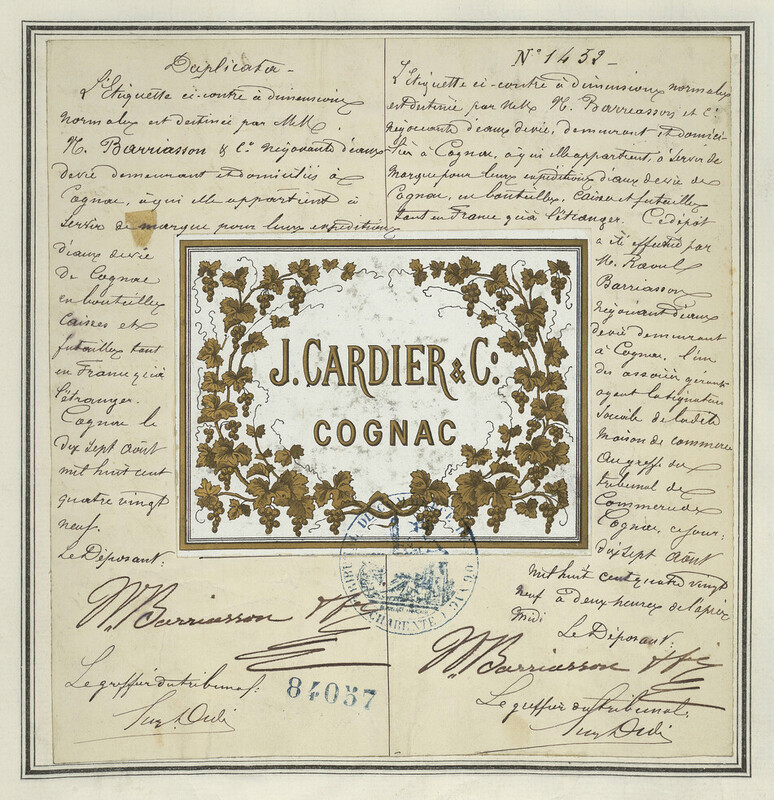 Duplicata -
L'Etiquette ci-contre à dimensions
normales est destinée par MM.
N. Barriasson & Co. négociants d'eaux
devie demeurant et domiciliés à
Cognac, à qui elle appartient à
servir de marque pour leurs expéditions
d'eaux devie
de Cognac
en bouteilles
caisses et
futailles tant
en France qu'à
l'étranger.
Cognac le
dix sept Août
mil huit cent
quatre vingt
neuf.
Le Déposant:
N. Barriasson
Le greffier du tribunal:
84057
N° 1452 -
L'Etiquette ci-contre à dimensions normales
est destinée par MM. N. Barriasson et Co.
négociants d'eaux devie, demeurant et domici-
liés à Cognac, à qui elle appartient, à servir de
marque pour leurs expéditions d'eaux devie de
Cognac, en bouteilles, caisses et futailles
tant en France qu'à l'étranger. Ce dépôt
a été effectué par
M. Raoul
Barriasson
négociant d'eaux
devie demeurant
à Cognac, l'un
des associés gérants
ayant la signature
sociale de ladite
maison de commerce
Au greffe du
tribunal de
Commerce de
Cognac, ce jour:
dix sept Août
mil huit cent quatre vingt
neuf à deux heures de l'après
midi
Le Déposant:
N. Barriasson
Le greffier du tribunal:
J. CARDIER & Co.
COGNAC
CHARENTE